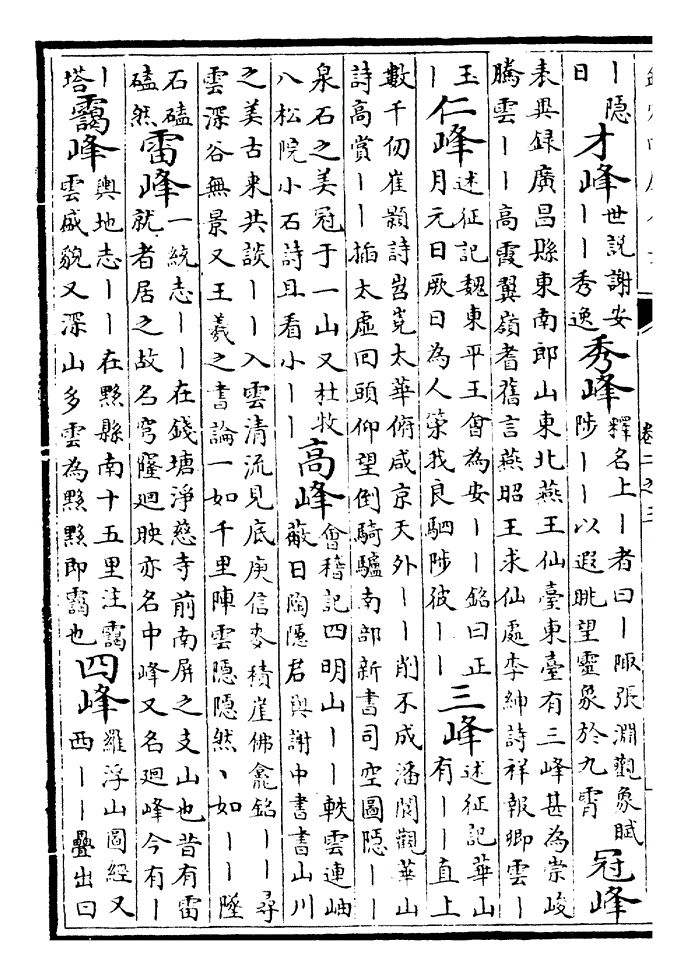 丨隱
日
才峰
世説謝安
丨丨秀逸
秀峰
釋名上丨者曰丨陬張淵觀象賦
陟丨丨以遐眺望靈象於九霄
冠峰
表異録廣昌縣東南郎山東北燕王仙臺東臺有三峰甚為崇峻
騰雲丨丨高霞翼嶺耆舊言燕昭王求仙處李紳詩祥報卿雲丨
玉
丨
仁峰
述征記魏東平王曾為安丨丨銘曰正
月元日厥日為人策我良駟陟彼丨丨
三峰
述征記華山
有丨丨直上
數千仞崔顥詩岧嶤太華俯咸京天外丨丨削不成潘閬觀華山
詩高賞丨丨插太虛回頭仰望倒騎驢南部新書司空圖隱丨丨
泉石之美冠于一山又杜牧
八松院小石詩且看小丨丨
高峰
會稽記四明山丨丨軼雲連岫
蔽日陶隱君與謝中書書山川
之美古來共談丨丨入雲清流見底庾信麥積崖佛龕銘丨丨尋
雲深谷無景又王羲之書論一如千里陣雲隱隱然丶如丨丨墜
石磕
磕然
雷峰
一統志丨丨在錢塘淨慈寺前南屏之支山也昔有雷
就者居之故名穹窿迴映亦名中峰又名迴峰今有丨
丨
塔
靄峰
輿地志丨丨在黟縣南十五里注靄
雲盛貌又深山多雲為黟黟即靄也
四峰
羅浮山圖經又
西丨丨疊出曰